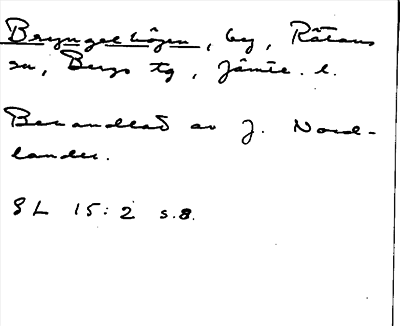 Bryngelhögen, by, Rätans
sn, Bergs tg, Jämtl. l.
Behandlat av J. Nord-
lander.
SL 15:2 s.8.